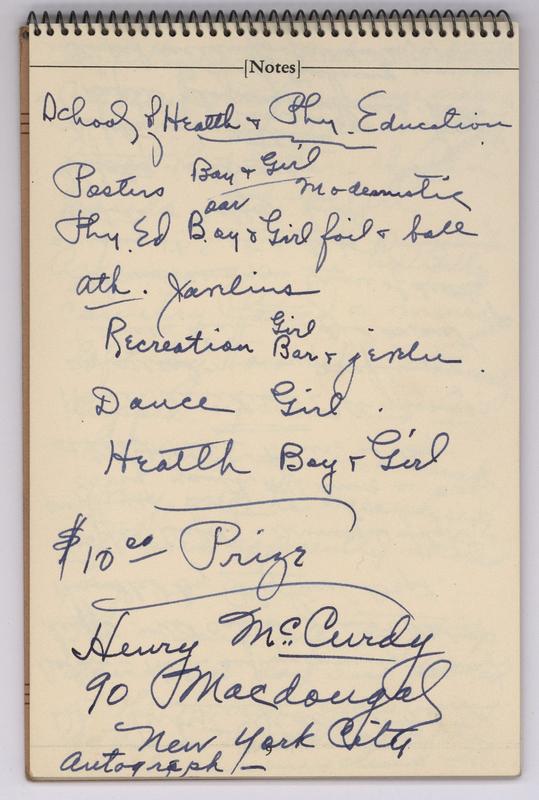 [Notes]
School of Health & Phy. Education
Posters Boy & Girl Modernistic
Phy. Ed Boy & Girl foil & ball
oar
Ath. Javelins
Recreation Girl
Bar &
Dance Girl.
Health Boy & Girl
$10 00 Prize
Henry McCurdy
90 Macdougal
New York City
Autograph —